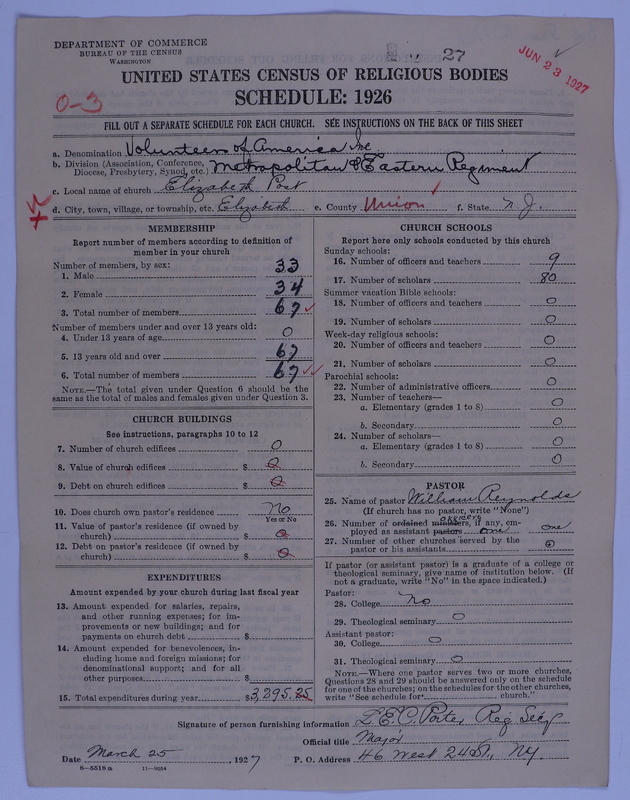 27
JUN 23 1927
DEPARTMENT OF COMMERCE
BUREAU OF THE CENSUS
WASHINGTON
UNITED STATES CENSUS OF RELIGIOUS BODIES
SCHEDULE: 1926
0-3
FILL OUT A SEPARATE SCHEDULE FOR EACH CHURCH. SEE INSTRUCTIONS ON THE BACK OF THIS SHEET
a. Denomination Volunteers of America Inc
b. Division (Association, Conference, Diocese, Presbytery, Synod, etc.) Metropolitan & Eastern Regiment
c. Local name of church Elizabeth Post
d. City, town, village, or township, etc. Elizabeth e. County Union f. State N. J.
MEMBERSHIP
Report number of members according to definition of
member in your church
Number of members, by sex:
1. Male 33
2. Female 34
3. Total number of members 67
Number of members under and over 13 years old:
4. Under 13 years of age 0
5. 13 years old and over 67
6. Total number of members 67
NOTE.—The total given under Question 6 should be the
same as the total of males and females given under Question 3.
CHURCH BUILDINGS
See instructions, paragraphs 10 to 12
7. Number of church edifices 0
8. Value of church edifices $ 0
9. Debt on church edifices $ 0
10. Does church own pastor's residence No
Yes or No
11. Value of pastor's residence (if owned by
church) $ 0
12. Debt on pastor's residence (if owned by
church) $ 0
EXPENDITURES
Amount expended by your church during last fiscal year
13. Amount expended for salaries, repairs,
and other running expenses; for im-
provements or new buildings; and for
payments on church debt $
14. Amount expended for benevolences, in-
cluding home and foreign missions; for
denominational support; and for all
other purposes $
15. Total expenditures during year $3,295.25
CHURCH SCHOOLS
Report here only schools conducted by this church
Sunday schools:
16. Number of officers and teachers 9
17. Number of scholars 80
Summer vacation Bible schools:
18. Number of officers and teachers 0
19. Number of scholars 0
Week-day religious schools:
20. Number of officers and teachers 0
21. Number of scholars 0
Parochial schools:
22. Number of administrative officers 0
23. Number of teachers—
a. Elementary (grades 1 to 8) 0
b. Secondary 0
24. Number of scholars—
a. Elementary (grades 1 to 8) 0
b. Secondary 0
PASTOR
25. Name of pastor William Reynolds
(If church has no pastor, write "None")
officers
26. Number of ordained ministers, if any, em-
ployed as assistant pastors one one
27. Number of other churches served by the
pastor or his assistants 0
If pastor (or assistant pastor) is a graduate of a college or
theological seminary, give name of institution below. (If
not a graduate, write "No" in the space indicated.)
Pastor:
28. College No
29. Theological seminary 0
Assistant pastor:
30. College 0
31. Theological seminary 0
NOTE.—Where one pastor serves two or more churches,
Questions 28 and 29 should be answered only on the schedule
for one of the churches; on the schedules for the other churches,
write "See schedule for church."
Signature of person furnishing information L. E. C. Porter Reg Secy
Official title Major
Date March 25, 1927 P. O. Address 46 West 24 St, NY.
8-5518a 11-9034